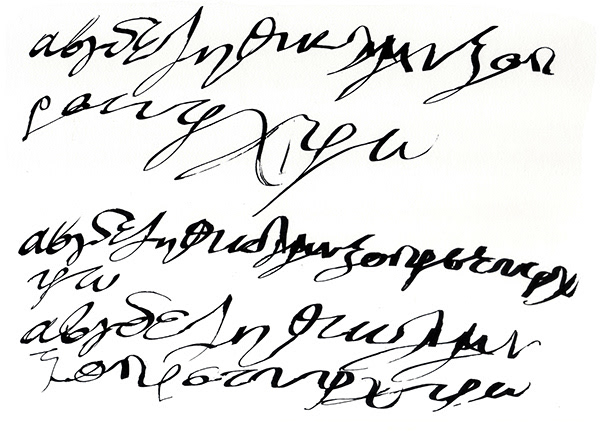 αβγδεζηθικλμνξοπ
ρστυφχψω
αβγδεζηθικλμνξοπρστυφχ
ψω
αβγδεζηθικλμν
ξοπρστυφχψω